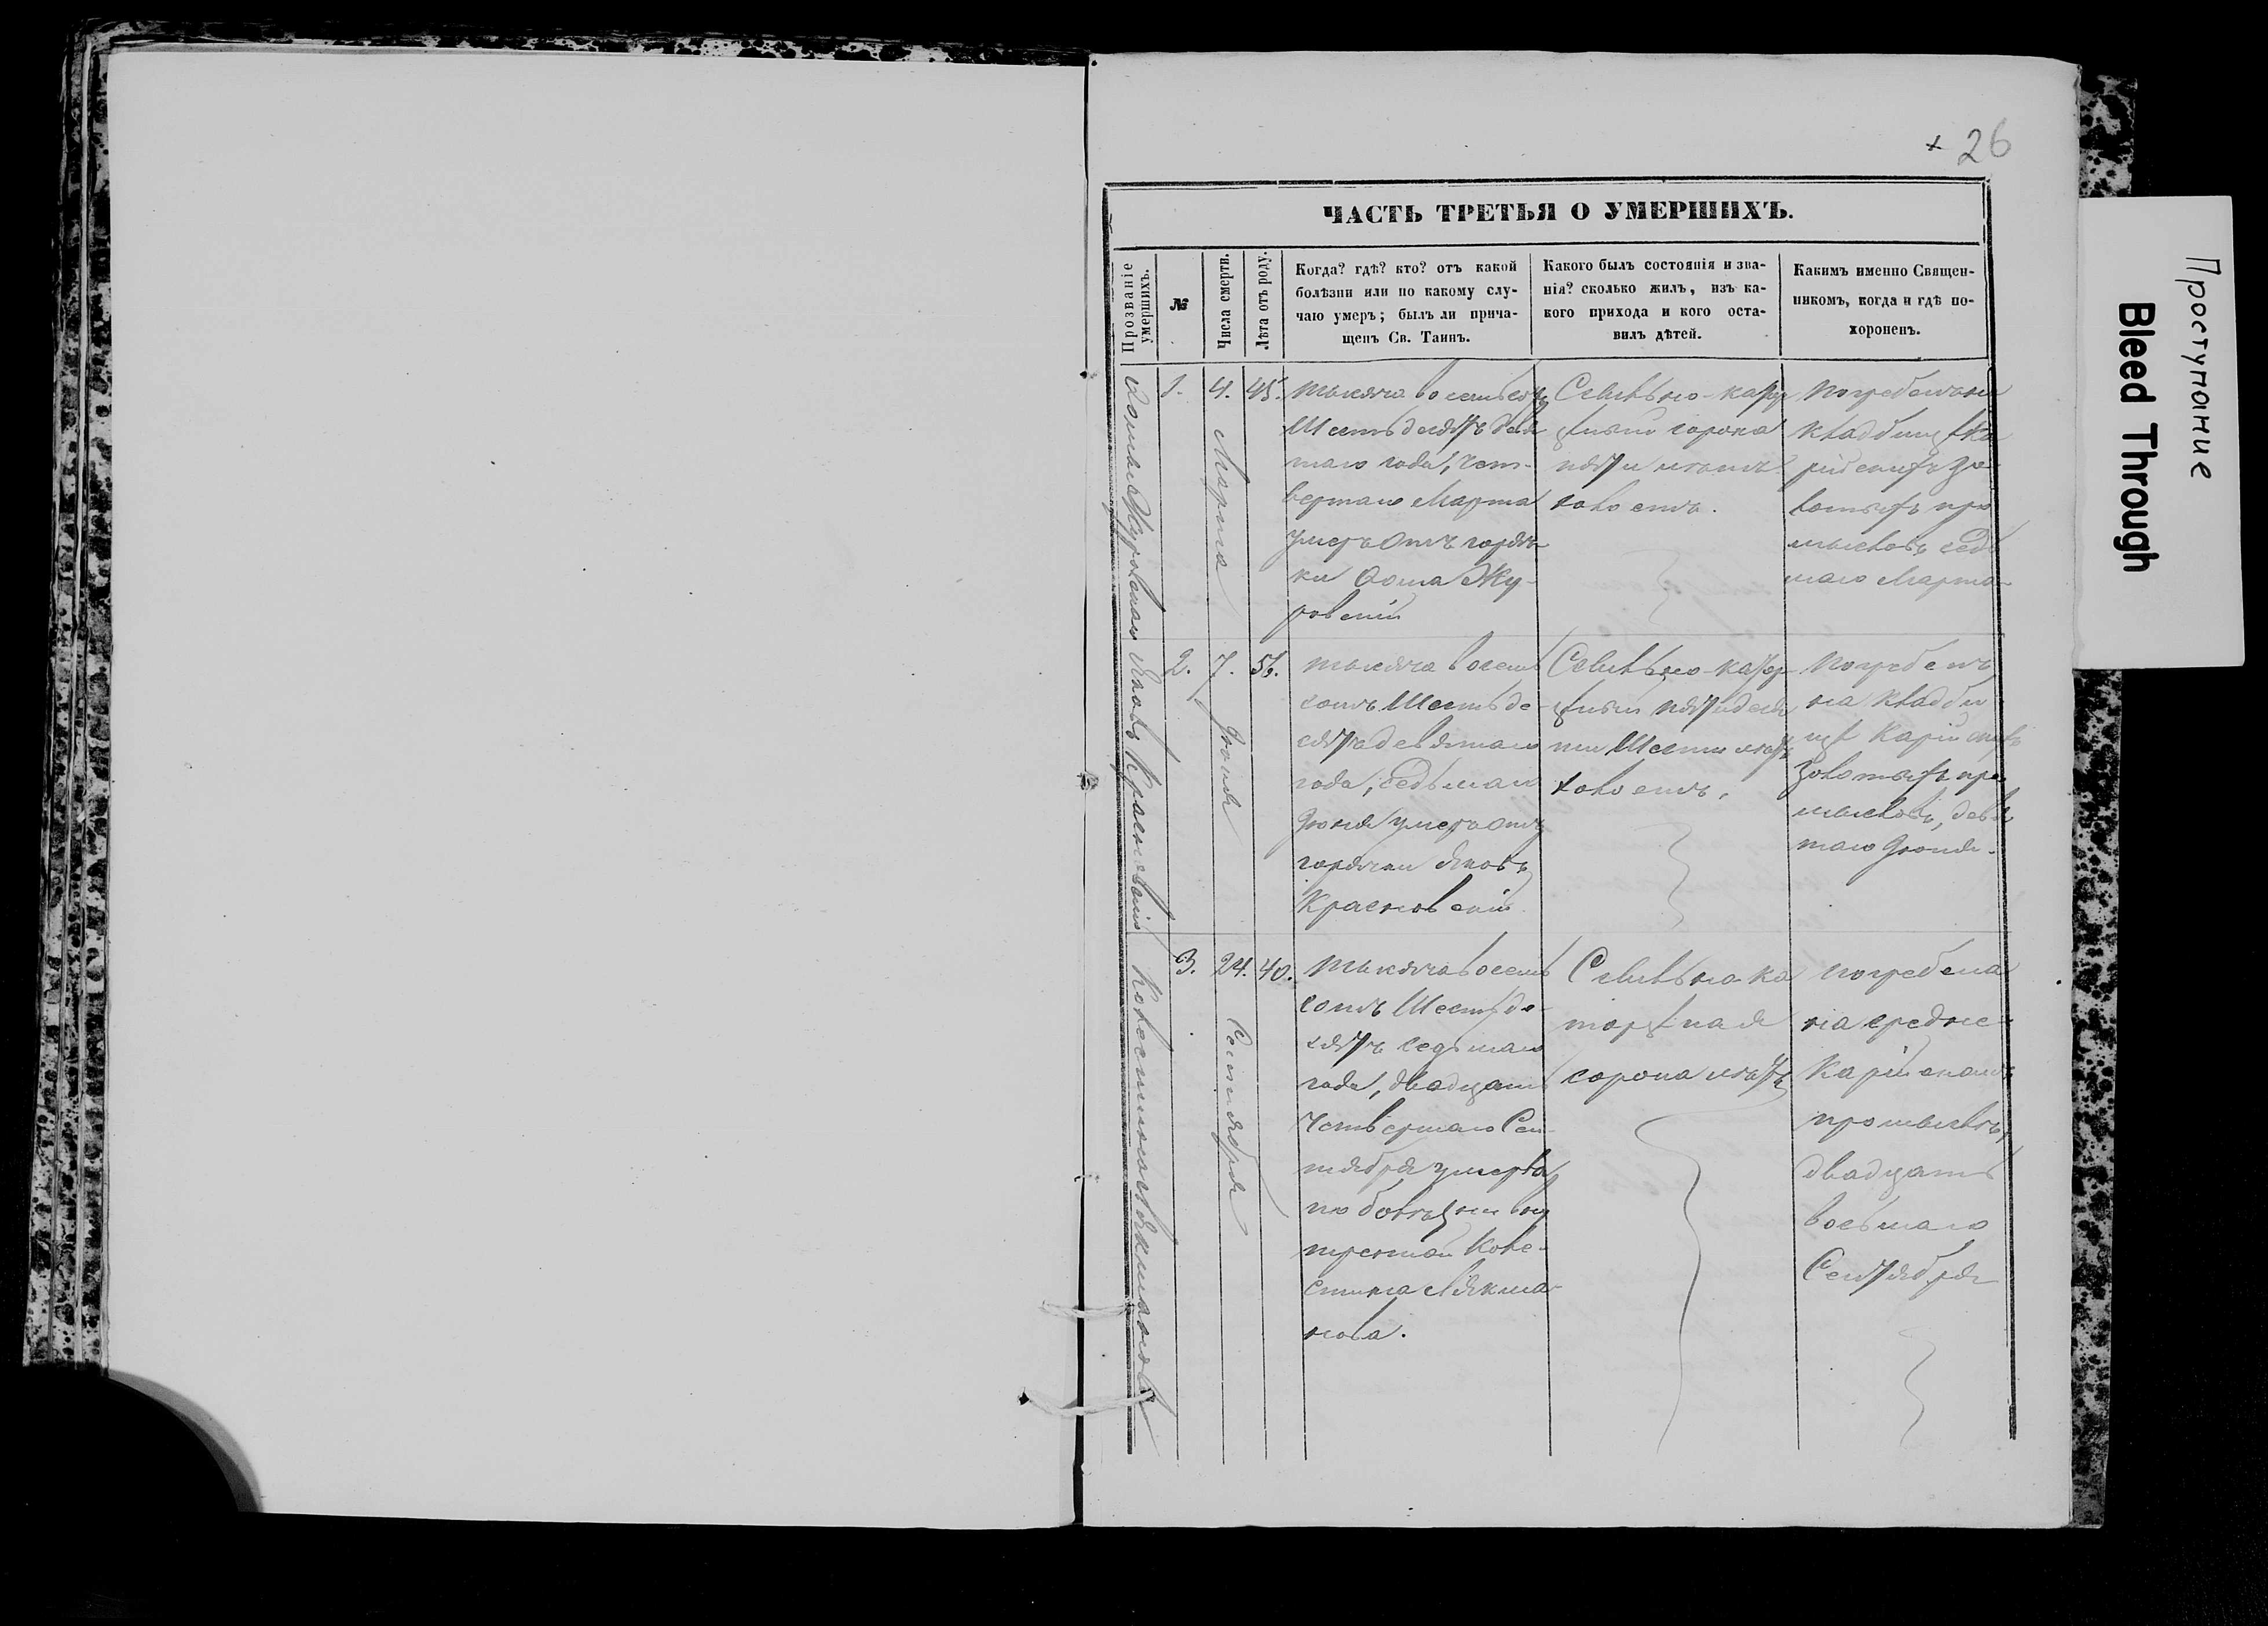 × 26
ЧАСТЬ ТРЕТЬЯ О УМЕРШИХЪ.
Прозваніе
умершихъ.
№
Числа смерти.
Лѣта отъ роду.
Когда? гдѣ? кто? отъ какой
болѣзни или по какому слу-
чаю умеръ; былъ ли прича-
щенъ Св. Таинъ.
Какого былъ состоянія и зва-
нія? сколько жилъ, изъ ка-
кого прихода и кого оста-
вилъ дѣтей.
Какимъ именно Священ-
никомъ, когда и гдѣ по-
хороненъ.
1.
4.
Марта
45.
тысяча восемьсотъ
Шестьдесятъ девя
таго года, чет-
вертаго Марта
умеръ отъ горяч
ки Ѳома Жу-
ровскій
Ссыльно-катор
жный сорока
пяти лѣтъ
холостъ.
Погребенъ на
кладбищѣ Ка
рійскихъ зо-
лотыхъ про
мысловъ седь
маго Марта
2.
7.
Іюня
56.
тысяча восемь
сотъ Шестьде-
сятъ девятаго
года, седьмаго
Іюня умеръ отъ
горячки Яковъ
Красновскій
Ссыльно-катор-
жный пятидеся
ти Шести лѣтъ
холостъ.
Погребенъ
на кладби
щѣ Карійскихъ
Золотыхъ про
мысловъ, девя
таго Іюня.
3.
24.
Сентября
40.
тысяча восемь
сотъ Шестьде-
сятъ седьмаго
года, двадцать
Четвертаго Сен-
тября умерла
по болѣзни вну
тренной Коле-
стина Лякма-
нова.
Ссыльно ка
торжная
сорока лѣтъ
погребена
на средне-
Карійскомъ
промыслѣ,
двадцать
восьмаго
Сентября
Проступание
Bleed Through